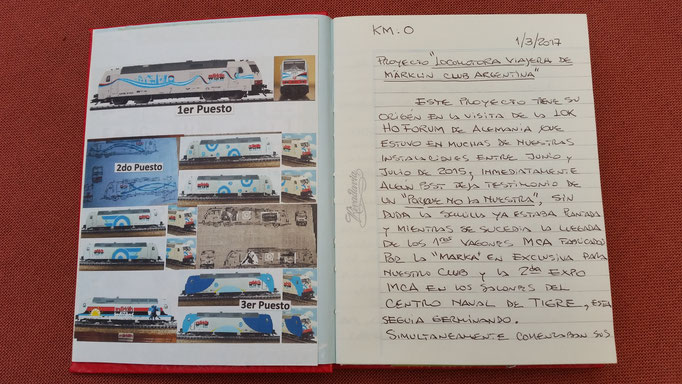 1er Puesto
2do Puesto
3er Puesto
KM. 0
1/3/2017
PROYECTO "LOCOMOTORA VIAJERA DE
MÄRKLIN CLUB ARGENTINA"
ESTE PROYECTO TIENE SU
ORIGEN EN LA VISITA DE LA LOK
H0 FORUM DE ALEMANIA QUE
ESTUVO EN MUCHAS DE NUESTRAS
INSTALACIONES ENTRE JUNIO Y
JULIO DE 2015, IMMEDIATAMENTE
ALGUN POST DEJA TESTIMONIO DE
UN "PORQUE NO LA NUESTRA", SIN
DUDA LA SEMILLA YA ESTABA PLANTADA
Y MIENTRAS SE SUCEDIA LA LLEGADA
DE LOS 1ros VAGONES MCA FABRICADOS
POR LA "MARKA" EN EXCLUSIVA PARA
NUESTRO CLUB Y LA 2da EXPO
MCA EN LOS SALONES DEL
CENTRO NAVAL DE TIGRE, ESTA
SEGUIA GERMINANDO.
SIMULTANEAMENTE COMENZABAN SUS